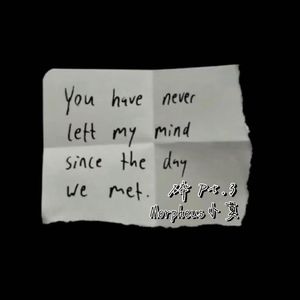 You have never
left my mind
since the day
we met.
碎 Pt.3
Morpheus小夏